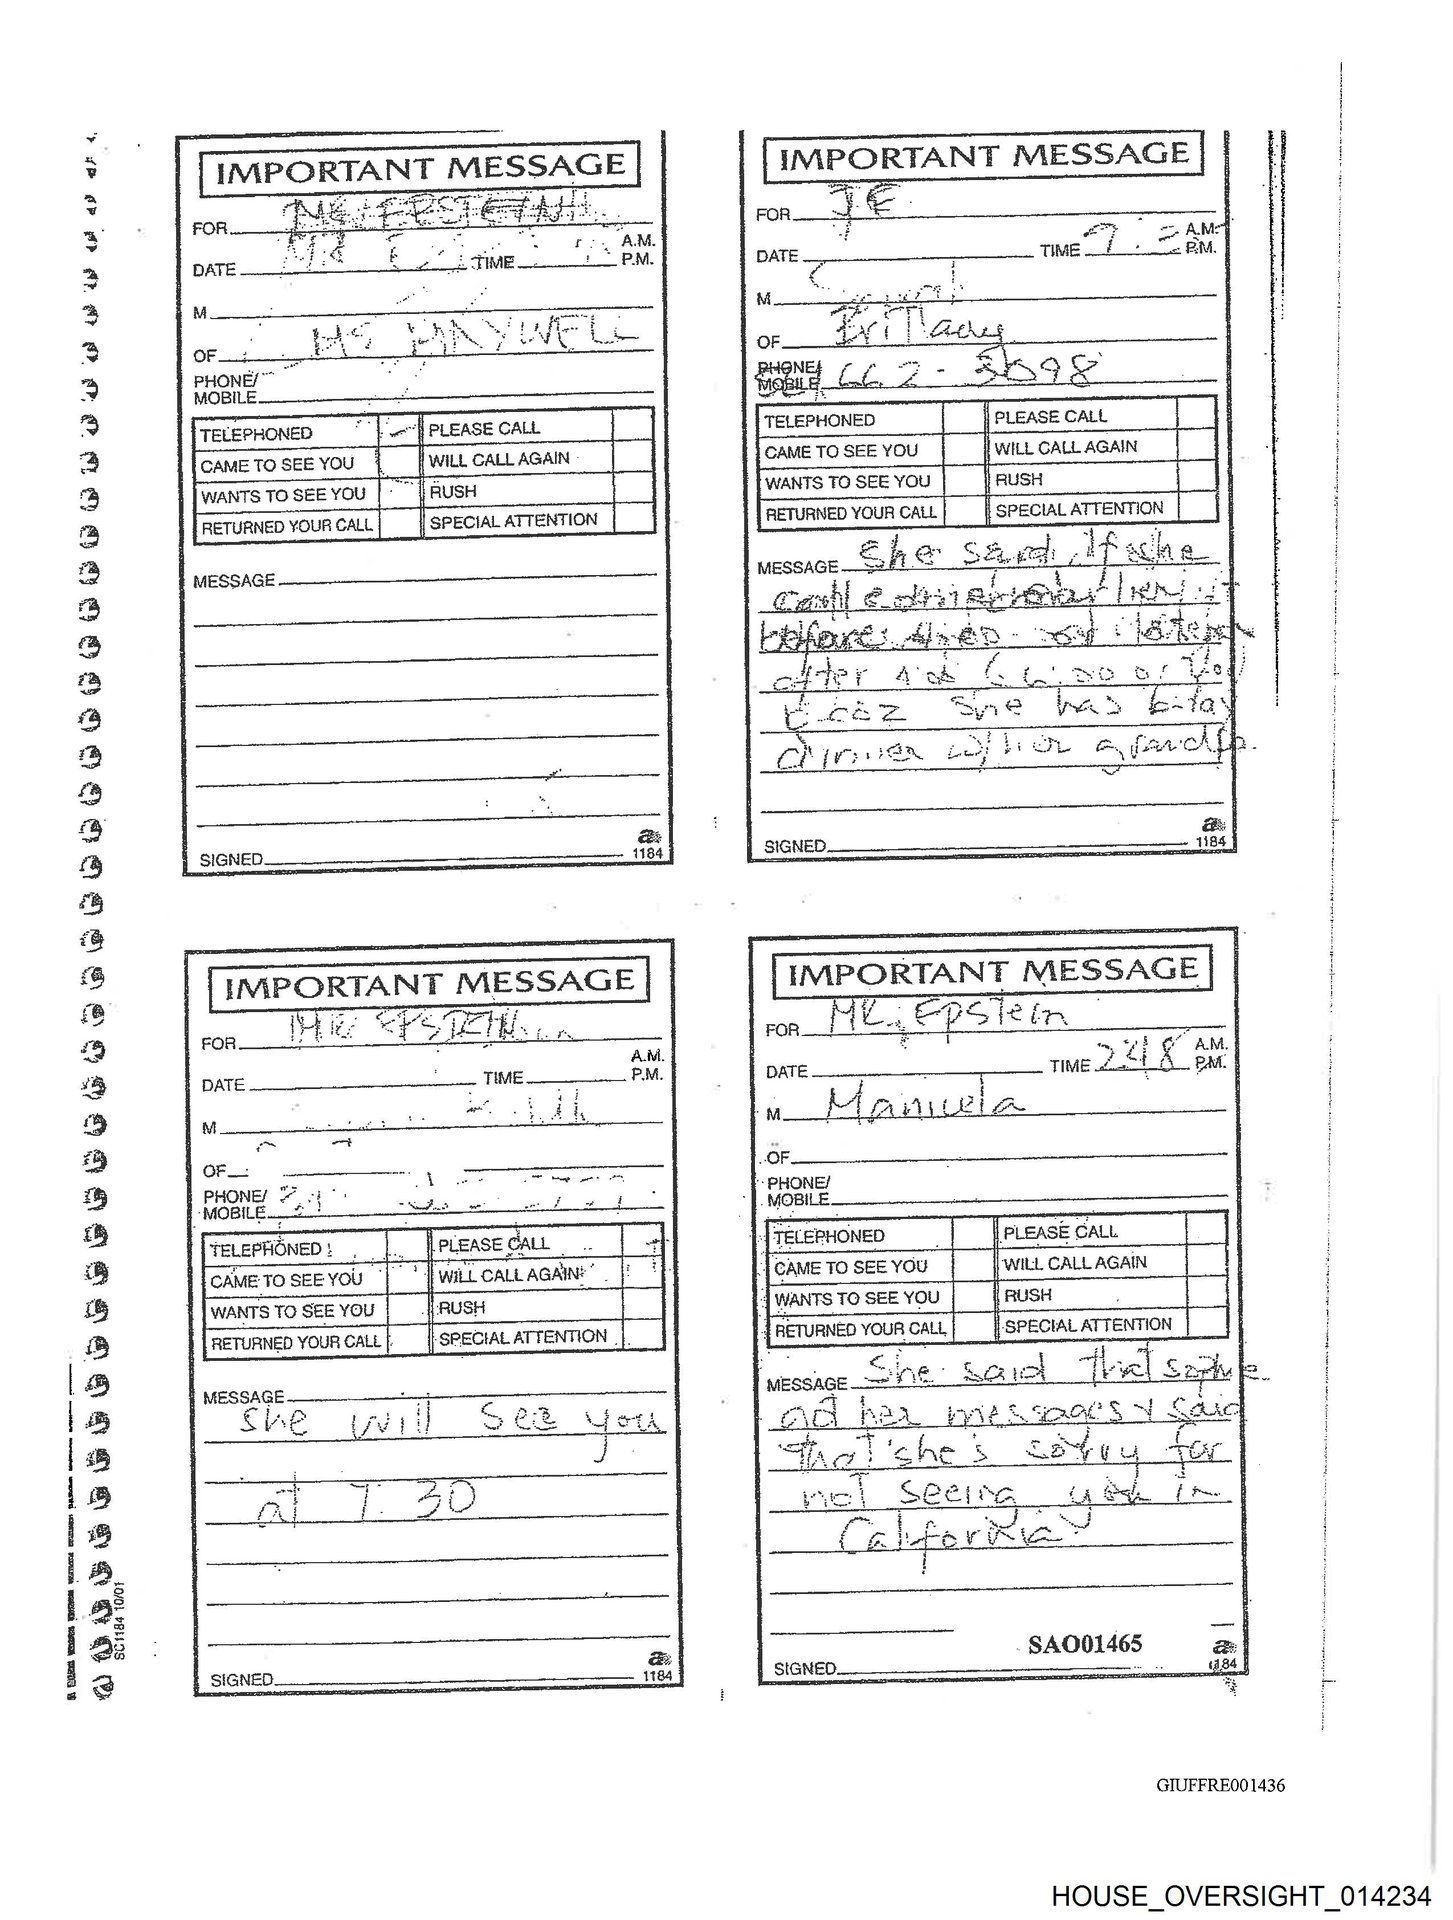 IMPORTANT MESSAGE
FOR MR. EPSTEIN
A.M.
DATE TIME P.M.
M
OF MS MAXWELL
PHONE/
MOBILE
TELEPHONED PLEASE CALL
CAME TO SEE YOU WILL CALL AGAIN
WANTS TO SEE YOU RUSH
RETURNED YOUR CALL SPECIAL ATTENTION
MESSAGE
a
SIGNED 1184
IMPORTANT MESSAGE
FOR JE
A.M.
DATE TIME P.M.
M
OF
PHONE/
MOBILE 662-3098
TELEPHONED PLEASE CALL
CAME TO SEE YOU WILL CALL AGAIN
WANTS TO SEE YOU RUSH
RETURNED YOUR CALL SPECIAL ATTENTION
MESSAGE She said, if she
before or
after
she has
dinner w/her
a
SIGNED 1184
IMPORTANT MESSAGE
FOR MR. EPSTEIN
A.M.
DATE TIME P.M.
M
OF
PHONE/
MOBILE
TELEPHONED PLEASE CALL
CAME TO SEE YOU WILL CALL AGAIN
WANTS TO SEE YOU RUSH
RETURNED YOUR CALL SPECIAL ATTENTION
MESSAGE
she will see you
at 7.30
a
SIGNED 1184
IMPORTANT MESSAGE
FOR MR. Epstein
A.M.
DATE TIME 2:48 P.M.
M Manuela
OF
PHONE/
MOBILE
TELEPHONED PLEASE CALL
CAME TO SEE YOU WILL CALL AGAIN
WANTS TO SEE YOU RUSH
RETURNED YOUR CALL SPECIAL ATTENTION
MESSAGE She said that Sophie
her messages & said
that she's sorry for
not seeing you in
California
SAO01465
a
SIGNED 1184
SC1184 10/01
GIUFFRE001436
HOUSE_OVERSIGHT_014234